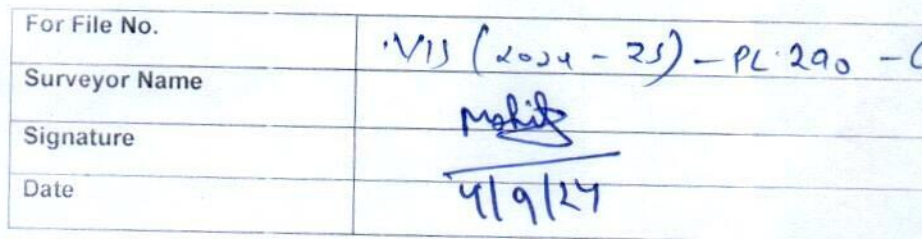 For File No. VIS (2024-25)-PL290-
Surveyor Name Mohit
Signature
Date 4/9/24